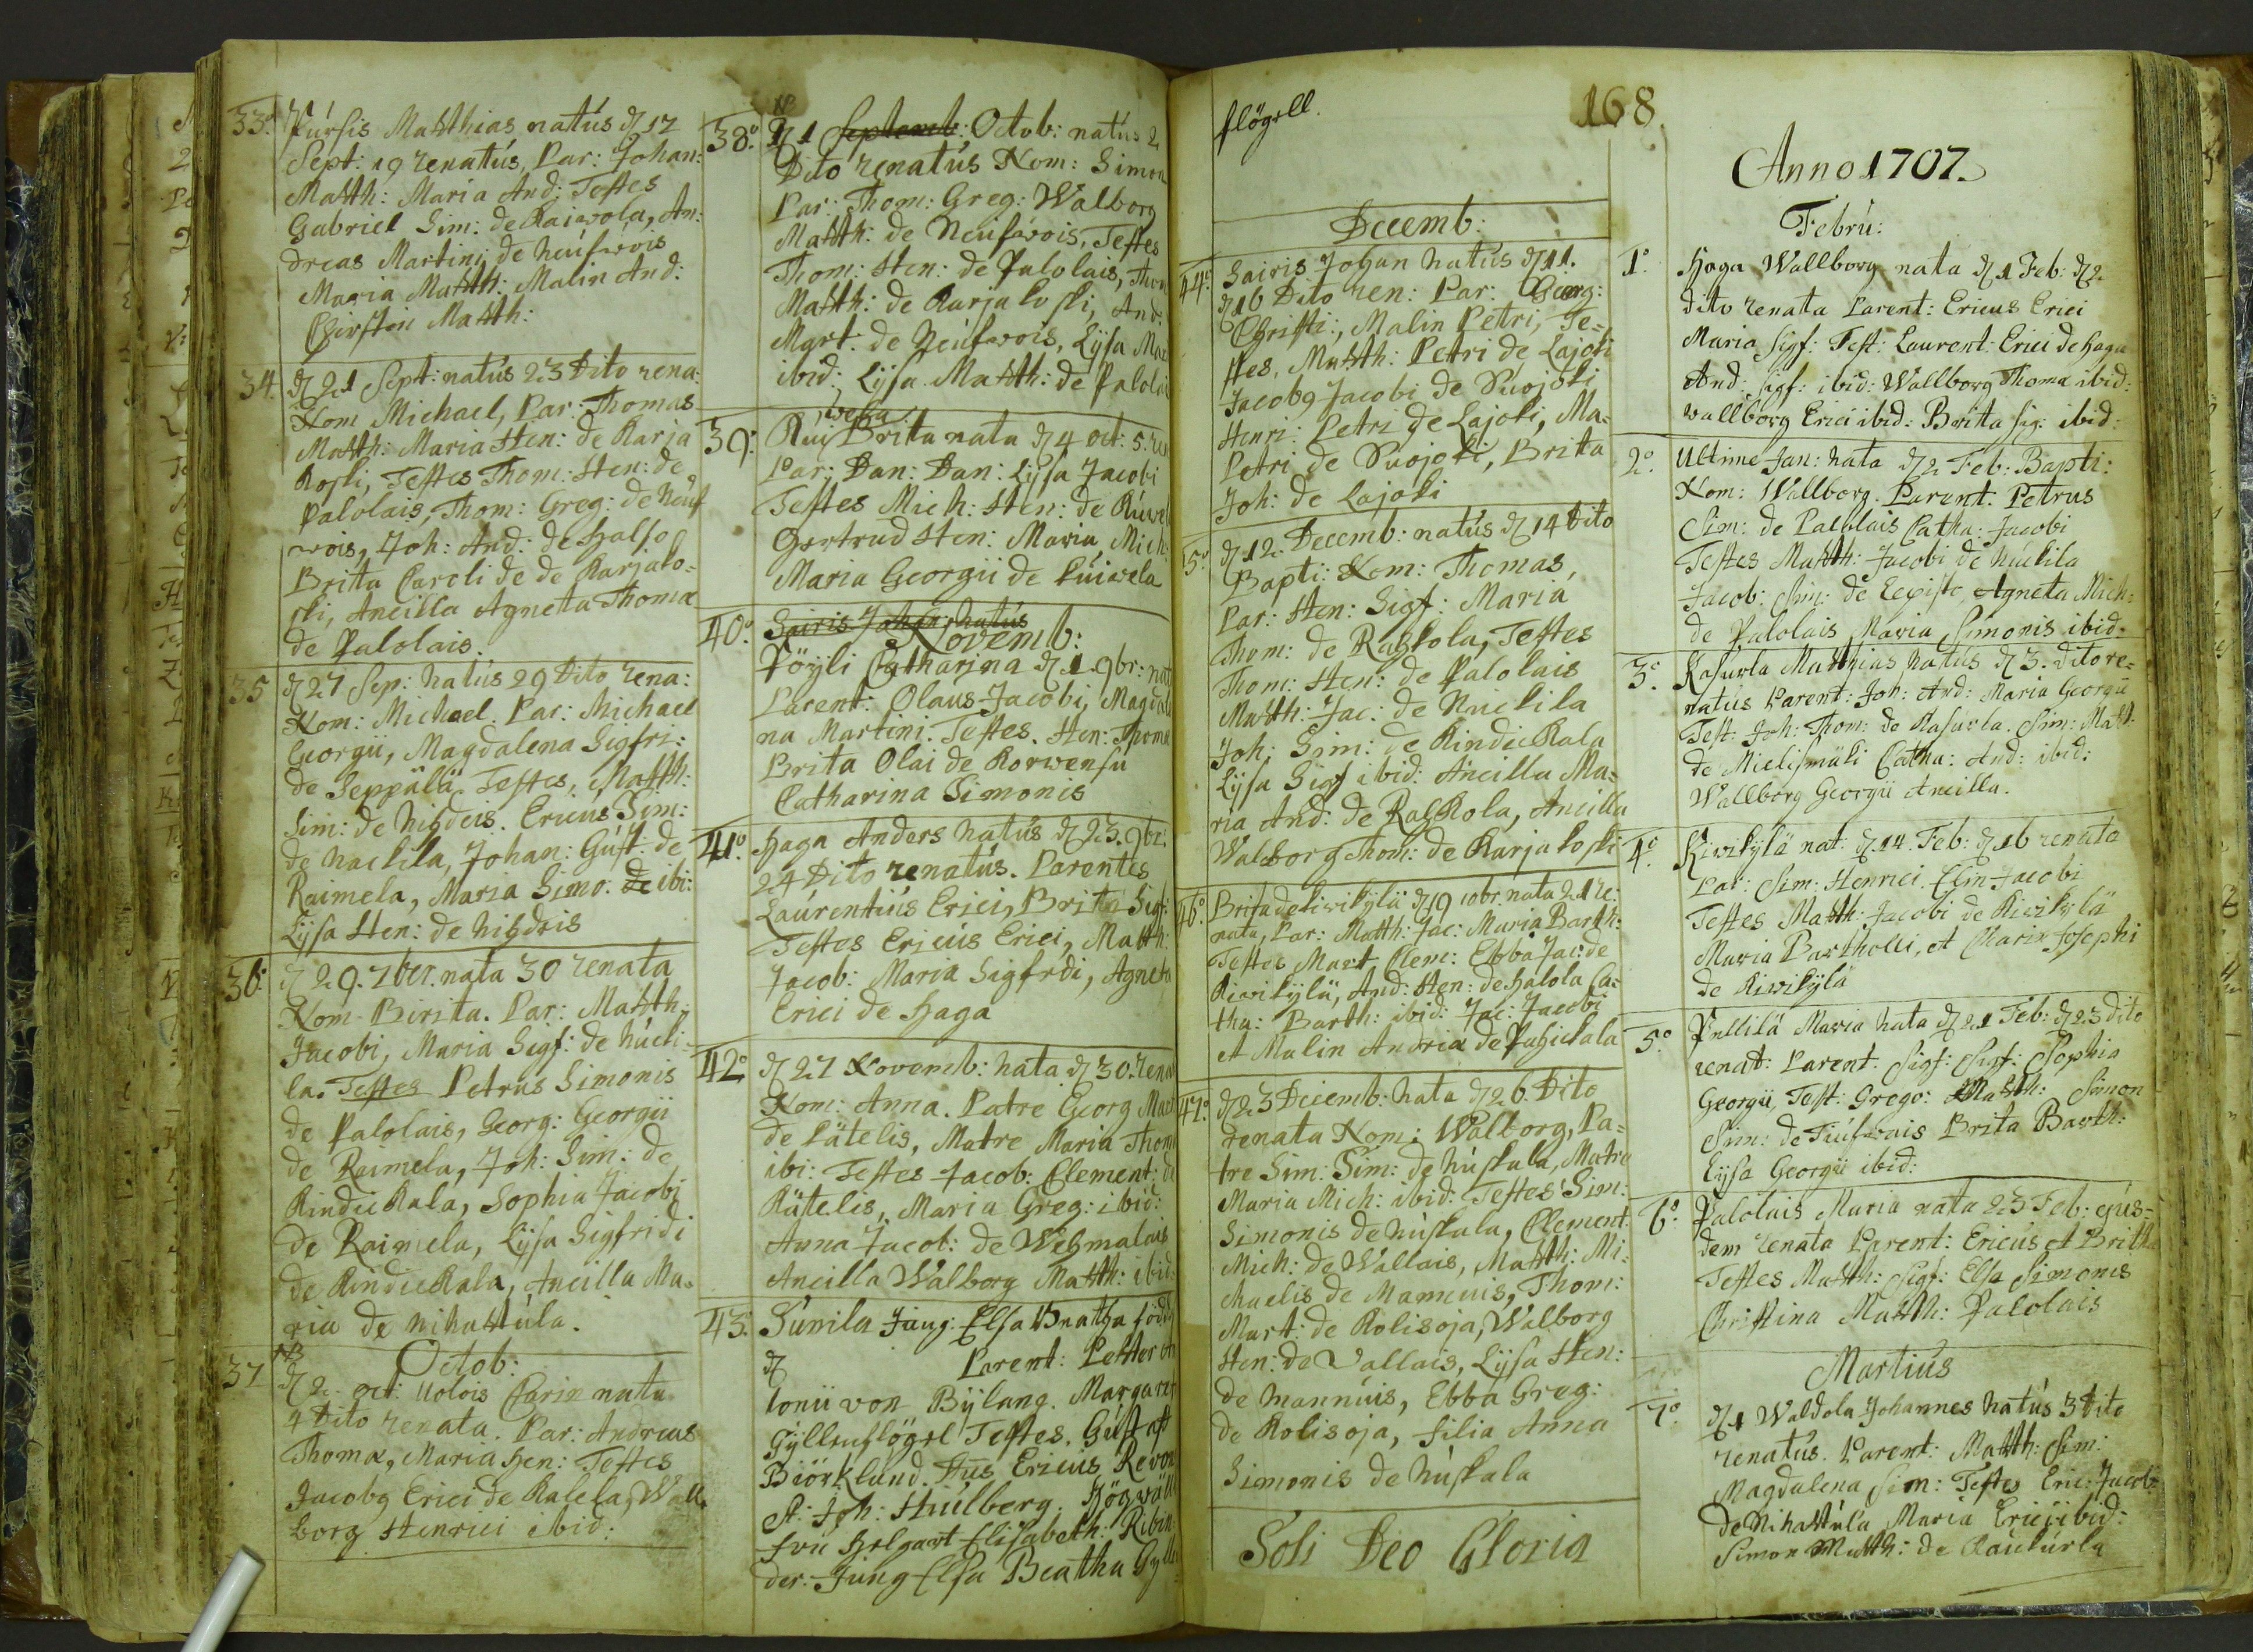 33. Pursis Matthias natús d 17
Sept: 19 renatús, Par: Johan:
Matth: Maria And: Testes
Gabriel Sim: de Raiwola, An:
dreas Martini de
Maria Matth: Malin And:
Chirstin Matth:
34. d 21 Sept: natús 23 Dito rena:
Nom Michael, Par: Thomas
Matth: Maria Hen: de Karja
koski, Testes Thom: Hen: de
Palolais, Thom: Greg: de Neúf
wois, Joh: And: de Halso
Brita Caroli de de Karjako-
ski, Ancilla Agneta Thomæ
de Palolais.
35 d 27 Sep: natús 29 Dito rena:
Nom: Michael. Par: Michael
Georgii, Magdalena Sigfri:
de Seppälä, Testes, Matth:
Sim: de Nihdeis. Ericús Sim:
de Nackila, Johan: Gúst: de
Raimela, Maria Simo: De ibi:
Lijsa Hen: de Nihdris
36. d 29. 7ber. nata 30 renata
Nom Birita. Par: Matth:
Jacobi, Maria Sigf: de Núcki-
la. Testes Petrus Simonis
de Palolais, Georg: Georgii
de Raimela, Joh: Sim: de
Rindukala, Sophia Jacobi
de Raimela, Lijsa Sigfridi
de Rindukala, Ancilla Ma-
ria de Nihattúla.
NB Octob:
37 d 2 oct: Uolois Carin nata
4 Dito renata. Par: Andreas
Thomæ, Maria Hen: Testes
Jacobg Erici de Kalela, Wall
borg Henrici ibid:
NB
38. d 1 Septemb: Octob: natús 2
Dito renatús Nom: Simon
Par: Thom: Greg: Walborg
Matth: de Neúfwois, Testes
Thom: Hen: de Palolais, Thom
Matth: de Karjakoski, And:
Mart: de Neúfwois, Lijsa Mar
ibid: Lijsa Matth: de Palolai
wesa
39. Rúi Brita nata d 4 oct: 5. ren
Par: Dan: Dan: Lijsa Jacobi
Testes Mich: Hen: de
Gertrud Hen: Maria Mich:
Maria Georgii de
40. Sairis Johan natús
Novemb:
Pöyli Catharina d 1 9br: nat
Parent: Olaus Jacobi, Magdale
na Martini. Testes. Hen: Thomæ
Brita Olai de Korwensu
Catharina Simonis
41. Haga Anders natús d 23. 9br:
24 Dito renatús. Parentes
Laúrentiús Erici, Brita Sigf:
Testes Ericús Erici, Matth:
Jacob: Maria Sigfrdi, Agneta
Erici de Haga
42. d 27 Novemb: nata d 30. rena
Nom: Anna. Patre Georg Mart
de Pätelis, Matre Maria Thomæ
ibi: Testes Jacob: Clement: de
Rätelis, Maria Greg: ibid:
Anna Jacob: de Wehmalais
Ancilla Walborg Matth: ibid:
43. Sunila Jung: Elsa Bnatha född
d Parent: Petter An
tonii von Býlang. Margaret
Gyllenflögel Testes. Gústaff
Biörklund. Dns Ericus Revon
Joh: Húlberg.
frú Helgart Elisabeth:
der: Jung Elsa Beatha Gylle
flögell.
168.
Decemb:
44. Sairis Johan natús d 11.
d 16 Dito ren: Par: Georg:
Christi:, Malin Petri, Te-
stes, Matth: Petri de Lajoki
Jacobg Jacobi de Suojoki
Henri: Petri de Lajoki, Ma-
Petri de Suojoki, Britta
Joh: de Lajoki
5. d 12. Decemb: natús d 14 Dito
Bapti: Nom: Thomas,
Par: Hen: Sigf: Maria
Thom: de Rahkola, Testes
Thom: Hen: de Palolais
Matth: Jac: de Nuckila
Joh: Sim: de Rindukala
Lijsa Sigf ibid: Ancilla Ma-
ria And: de Rahkola, Ancilla
Walborg Thom: de Karjakoski
46. Brita de kiwikylä d 19 10br. nata 21 re:
nata, Par: Matth: Jac: Maria Barth:
Testes Mart Clem: Ebba Jac: de
Kiwikylä, And: Hen: de Halola Ca-
tha: Barth: ibid: Jac: Jacobi
et Malin Andriæ de Puhickala
47. d 23 Decemb: nata d 26 Dito
renata Nom: Walborg, Pa-
tre Sim: Sim: de Núskala, Matre
Maria Mich: ibid: Testes Sim:
Simonis de Núskala, Clement:
Mich: de Wallais, Matth: Mi-
chaelis de Mannuis, Thom:
Mart: de Kolisoja, Walborg
Hen: de Vallais, Lijsa Hen:
de Mannúis, Ebba Greg:
de Kolisoja, filia Anna
Simonis de Núskala
Soli Deo Gloria
Anno 1707.
Febrú:
1. Haga Wallborg nata d 1 Feb: d 2
dito renata Parent: Ericus Erici
Maria Sigf: Test: Laurent: Erici de Haga
And: Sigf: ibid: Wallborg Thomæ ibid:
wallborg Erici ibid: Brita Sig: ibid:
2. Ultime Jan: nata d 2 Feb: Bapti:
Nom: Wallborg. Parent. Petrus
Sim: de Palolais Catha: Jacobi
Testes Matth: Jacobi de Núckila
Jacob: Sim: de Lepistö, Agneta Mich:
de Palolais Maria Simonis ibid:
3. Kasurla Matthias natús d 3. dito re-
natús Parent: Joh: And: Maria Georgii
Test: Joh: Thom: de Kasurla. Sim: Matt:
de Mielismäki Catha: And: ibid:
Wallborg Georgii Ancilla.
4. Kiwikylä nat: d 14. Feb: d 16 renata
Par: Sim: Henrici. Elin Jacobi
Testes Matth: Jacobi de Kiwikylä
Maria Bartholli, et Maria Josephi
de Kiwikylä
5. Pullilä Maria nata d 21 Feb: d 23 dito
renat: Parent. Sigf: Sigf: Sophia
Georgii, Test: Grego: Matth: Simon
Sim: de Brita Barth:
Lijsa Georgii ibid:
6. Palolais Maria nata 23 Feb: ejús-
dem renata Parent: Ericús et Britha
Testes Matth: Sigf: Elsa Simonis
Christina Matth: Palolais
Martiús
7. d 1 Waldola Johannes natús 3 Dito
renatús. Parent: Matth: Sim:
Magdalena Sim: Testes Eric: Jacobi
de Nihattúla Maria Erici ibid:
Simon Matth: de Raukúrla